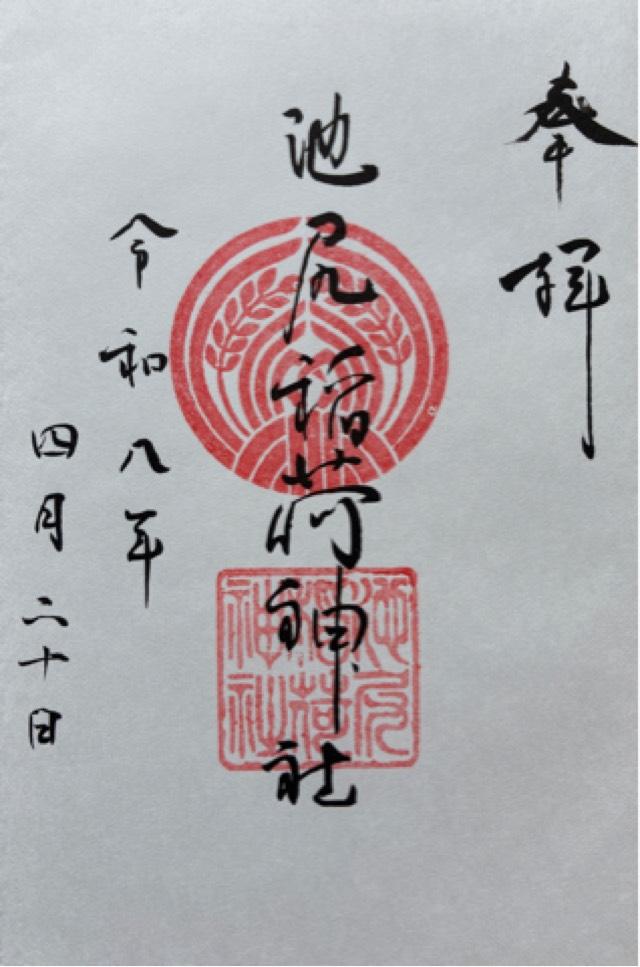 奉拝
池尻稲荷神社
池尻
稲荷
神社
令和八年
四月二十日